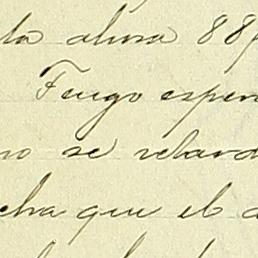 la ahura 889
Tengo esper
no se retard
cha que el a